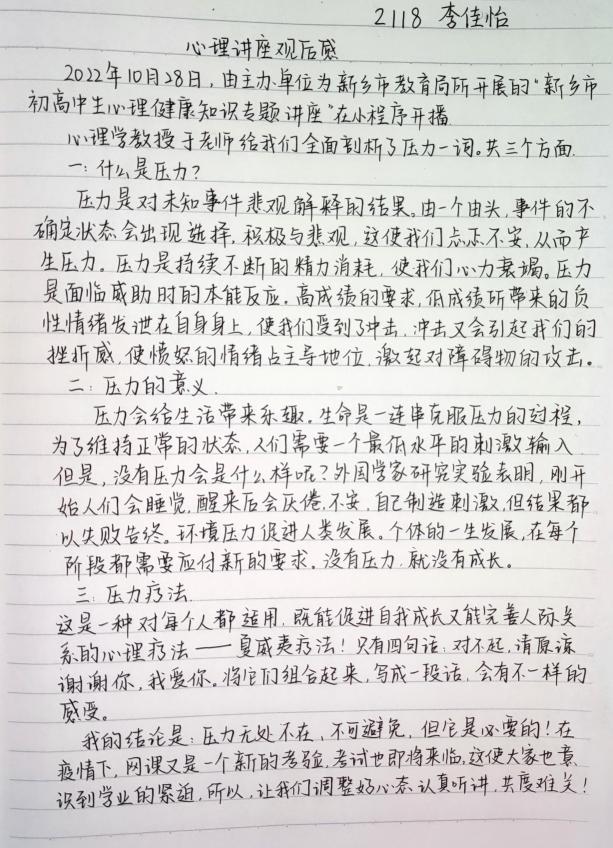 2118 李佳怡
心理讲座观后感
2022年10月28日，由主办单位为新乡市教育局所开展的“新乡市
初高中生心理健康知识专题讲座”在小程序开播.
心理学教授于老师给我们全面剖析了压力一词。共三个方面.
一：什么是压力？
压力是对未知事件悲观解释的结果。由一个由头，事件的不
确定状态会出现选择，积极与悲观，这使我们忐忑不安，从而产
生压力。压力是持续不断的精力消耗，使我们心力衰竭。压力
是面临威胁时的本能反应。高成绩的要求，低成绩所带来的负
性情绪发泄在自身身上，使我们受到了冲击，冲击又会引起我们的
挫折感，使愤怒的情绪占主导地位，激起对障碍物的攻击。
二：压力的意义.
压力会给生活带来乐趣。生命是一连串克服压力的过程，
为了维持正常的状态，人们需要一个最低水平的刺激输入
但是，没有压力会是什么样呢？外国学家研究实验表明，刚开
始人们会睡觉，醒来后会厌倦，不安，自己制造刺激，但结果都
以失败告终。环境压力促进人类发展。个体的一生发展，在每个
阶段都需要应付新的要求。没有压力，就没有成长。
三：压力疗法.
这是一种对每个人都适用，既能促进自我成长又能完善人际关
系的心理疗法——夏威夷疗法！只有四句话：对不起，请原谅
谢谢你，我爱你。将它们组合起来，写成一段话，会有不一样的
感受。
我的结论是：压力无处不在，不可避免，但它是必要的！在
疫情下，网课又是一个新的考验，考试也即将来临，这使大家也意
识到学业的紧迫，所以，让我们调整好心态，认真听讲，共度难关！